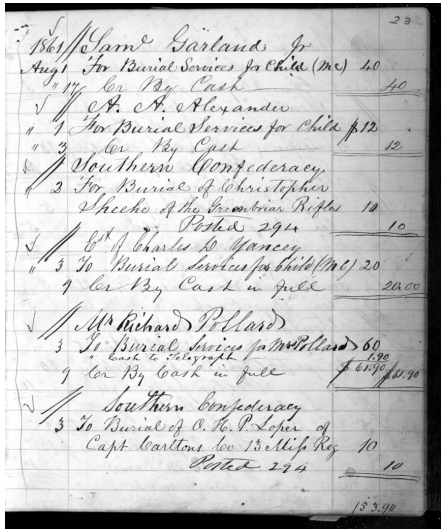 23
1861 Saml Garland Jr
Aug 1 For Burial Services for Child (Mc) 40
" 17 Cr By Cash 40
A. A. Alexander
" 1 For Burial Services for Child $12
" 3 Cr By Cash 12
Southern Confederacy
" 2 For Burial of Christopher
Sheehe of the Greenbriar Rifles 10
Posted 294 10
of Charles L Yancey
" 3 To Burial Services for Child (Mc) 20
9 Cr By Cash in full 20.00
Mr Richard Pollard
3 To Burial Services for Mrs Pollard 60
" Cash to Telegraph 1.90
9 Cr By Cash in full $61.90 $61.90
Southern Confederacy
3 To Burial of O. H. P. Loper of
Capt Carltons Co 13 Miss Reg 10
Posted 294 10
153.90